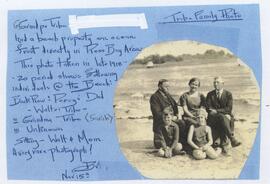 Grandpa Tribe
had a beach property on ocean
front directly in Ross Bay Area
This photo taken in late 1910's
- 20 period shows following
individuals @ the Beach:
Back Row: Percy - Dad
- Walter Tribe -
= Grandma - Tribe
= Unknown
Sitting - Walt & Mom
A very rare photograph!
Nov 15
Tribe Family Photo